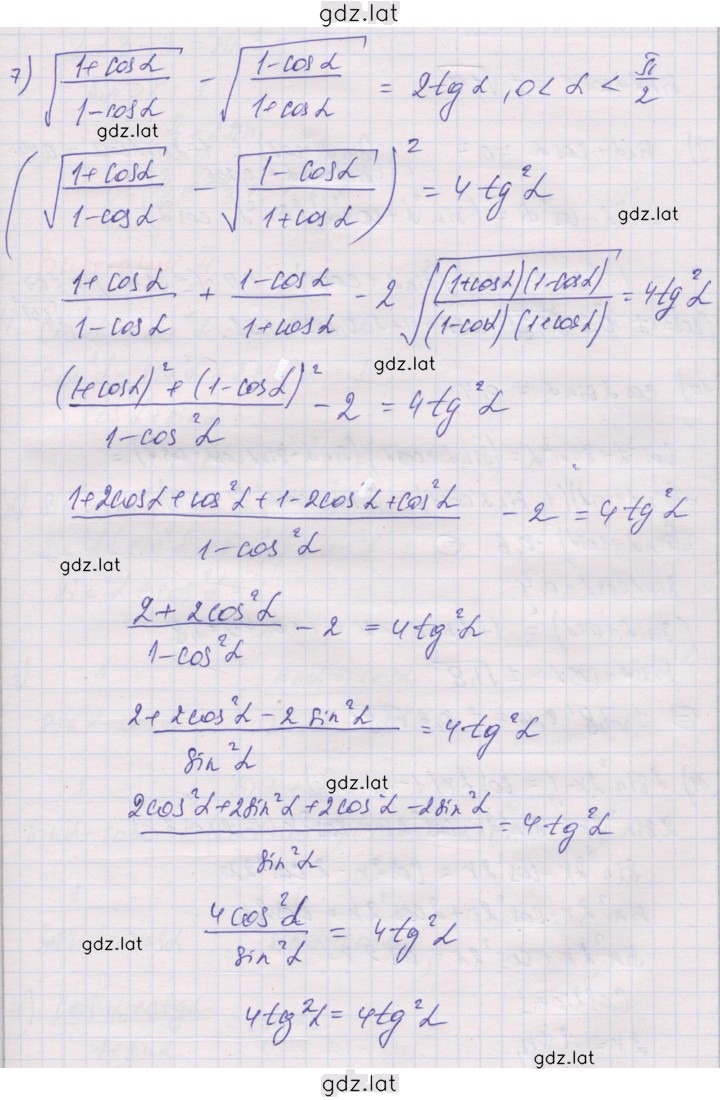 gdz.lat
7) √((1+cosα)/(1-cosα)) - √((1-cosα)/(1+cosα)) = 2tgα, 0 < α < π/2
gdz.lat
(√((1+cosα)/(1-cosα)) - √((1-cosα)/(1+cosα)))² = 4tg²α
gdz.lat
(1+cosα)/(1-cosα) + (1-cosα)/(1+cosα) - 2√(((1+cosα)(1-cosα))/((1-cosα)(1+cosα))) = 4tg²α
gdz.lat
((1+cosα)² + (1-cosα)²)/(1-cos²α) - 2 = 4tg²α
(1+2cosα+cos²α+1-2cosα+cos²α)/(1-cos²α) - 2 = 4tg²α
gdz.lat
(2+2cos²α)/(1-cos²α) - 2 = 4tg²α
(2+2cos²α-2sin²α)/(sin²α) = 4tg²α
gdz.lat
(2cos²α+2sin²α+2cos²α-2sin²α)/(sin²α) = 4tg²α
(4cos²α)/(sin²α) = 4tg²α
gdz.lat
4tg²α = 4tg²α
gdz.lat
gdz.lat